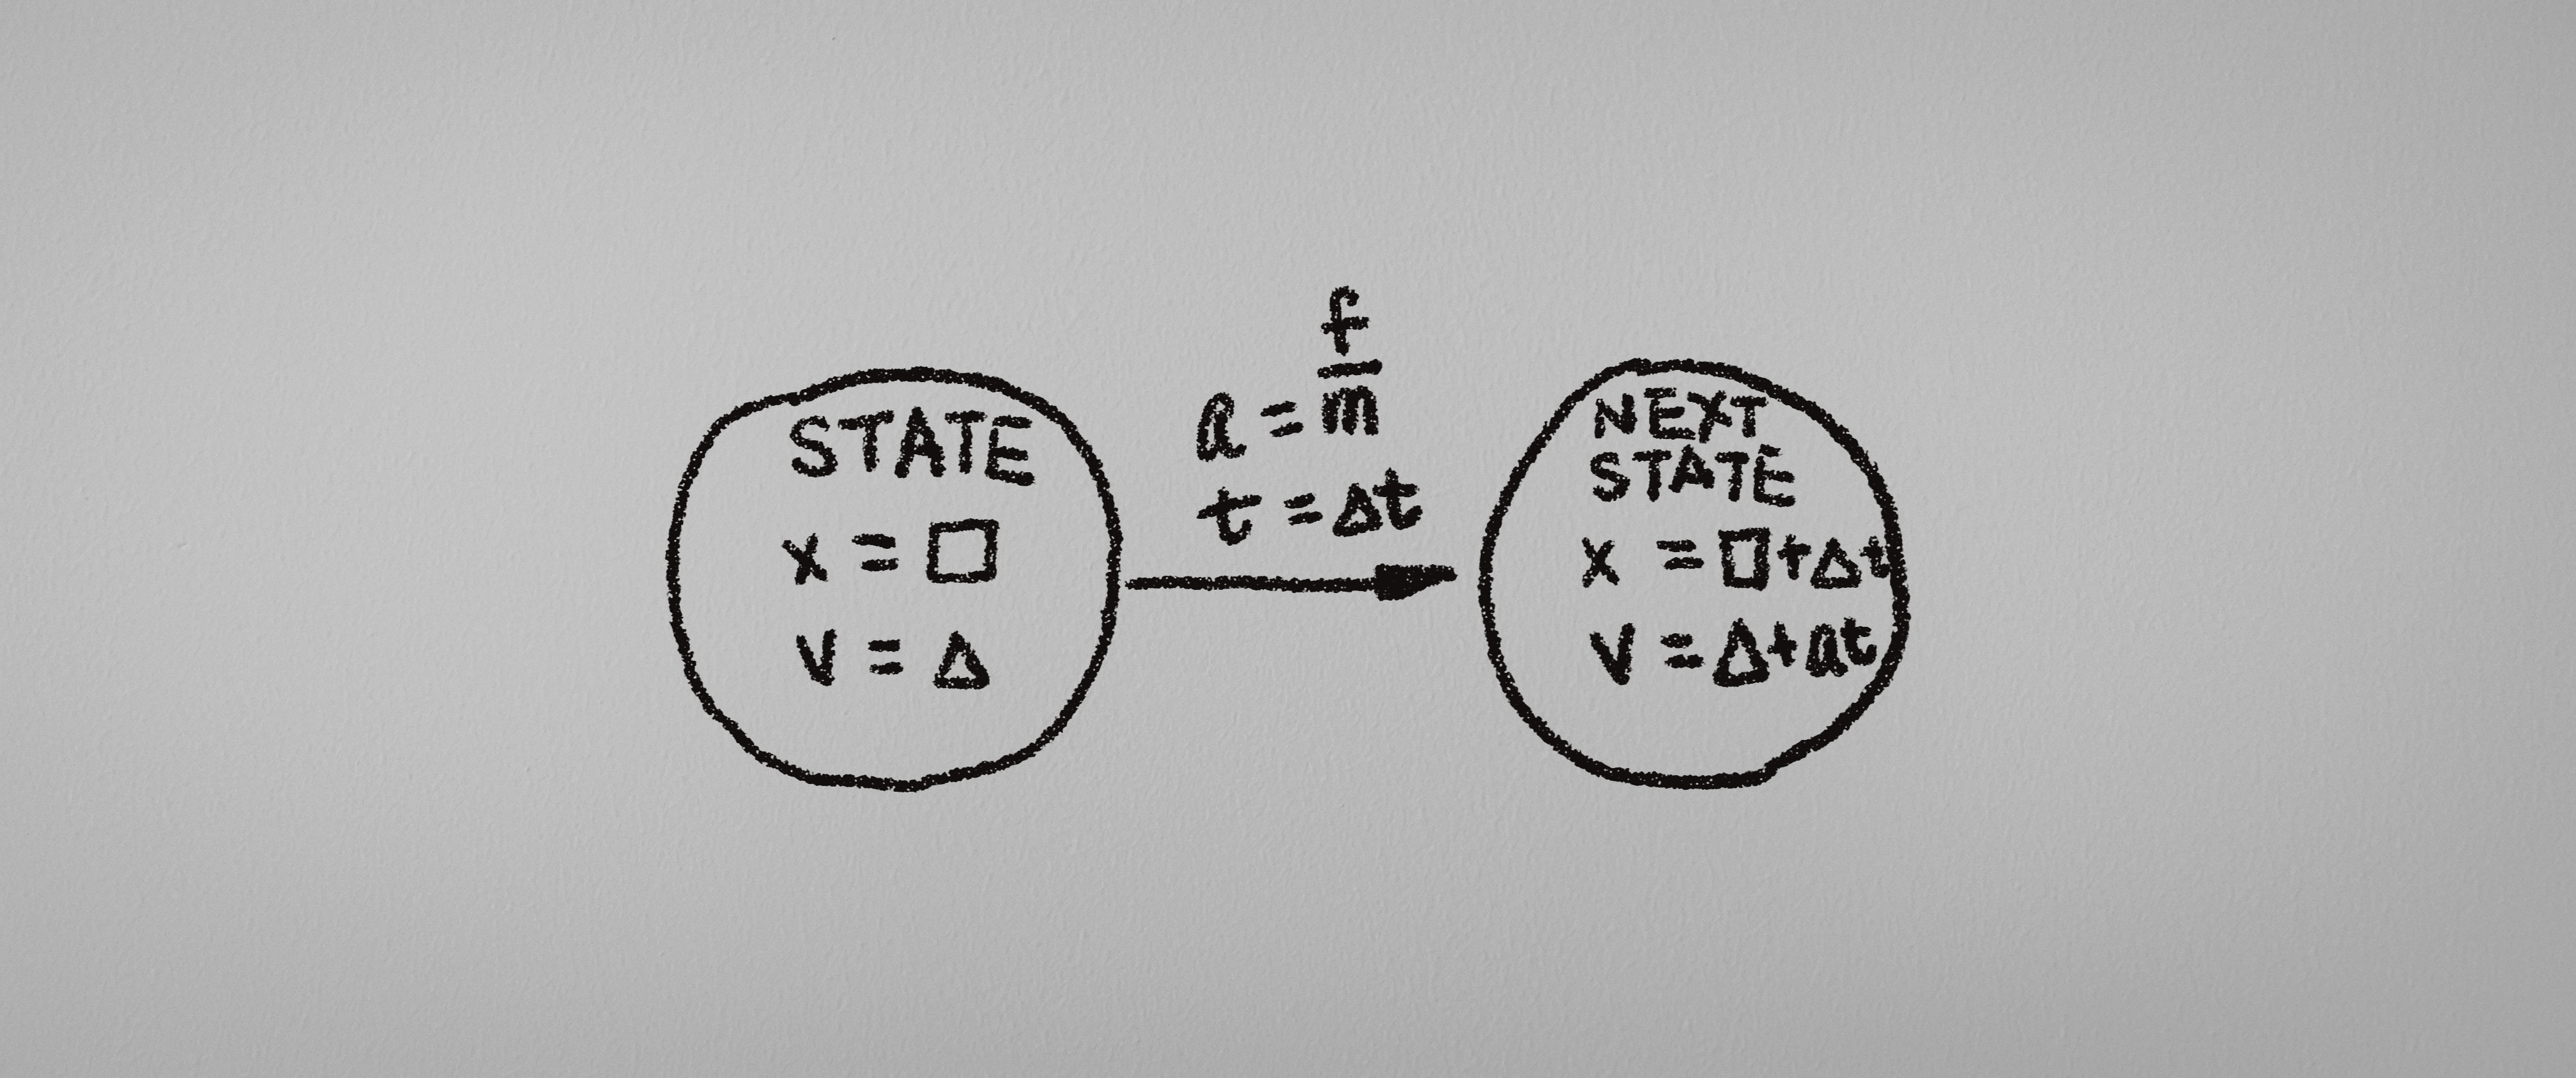 STATE
x = □
v = Δ
a = f/m
t = Δt
NEXT
STATE
x = □+Δt
v = Δ+at